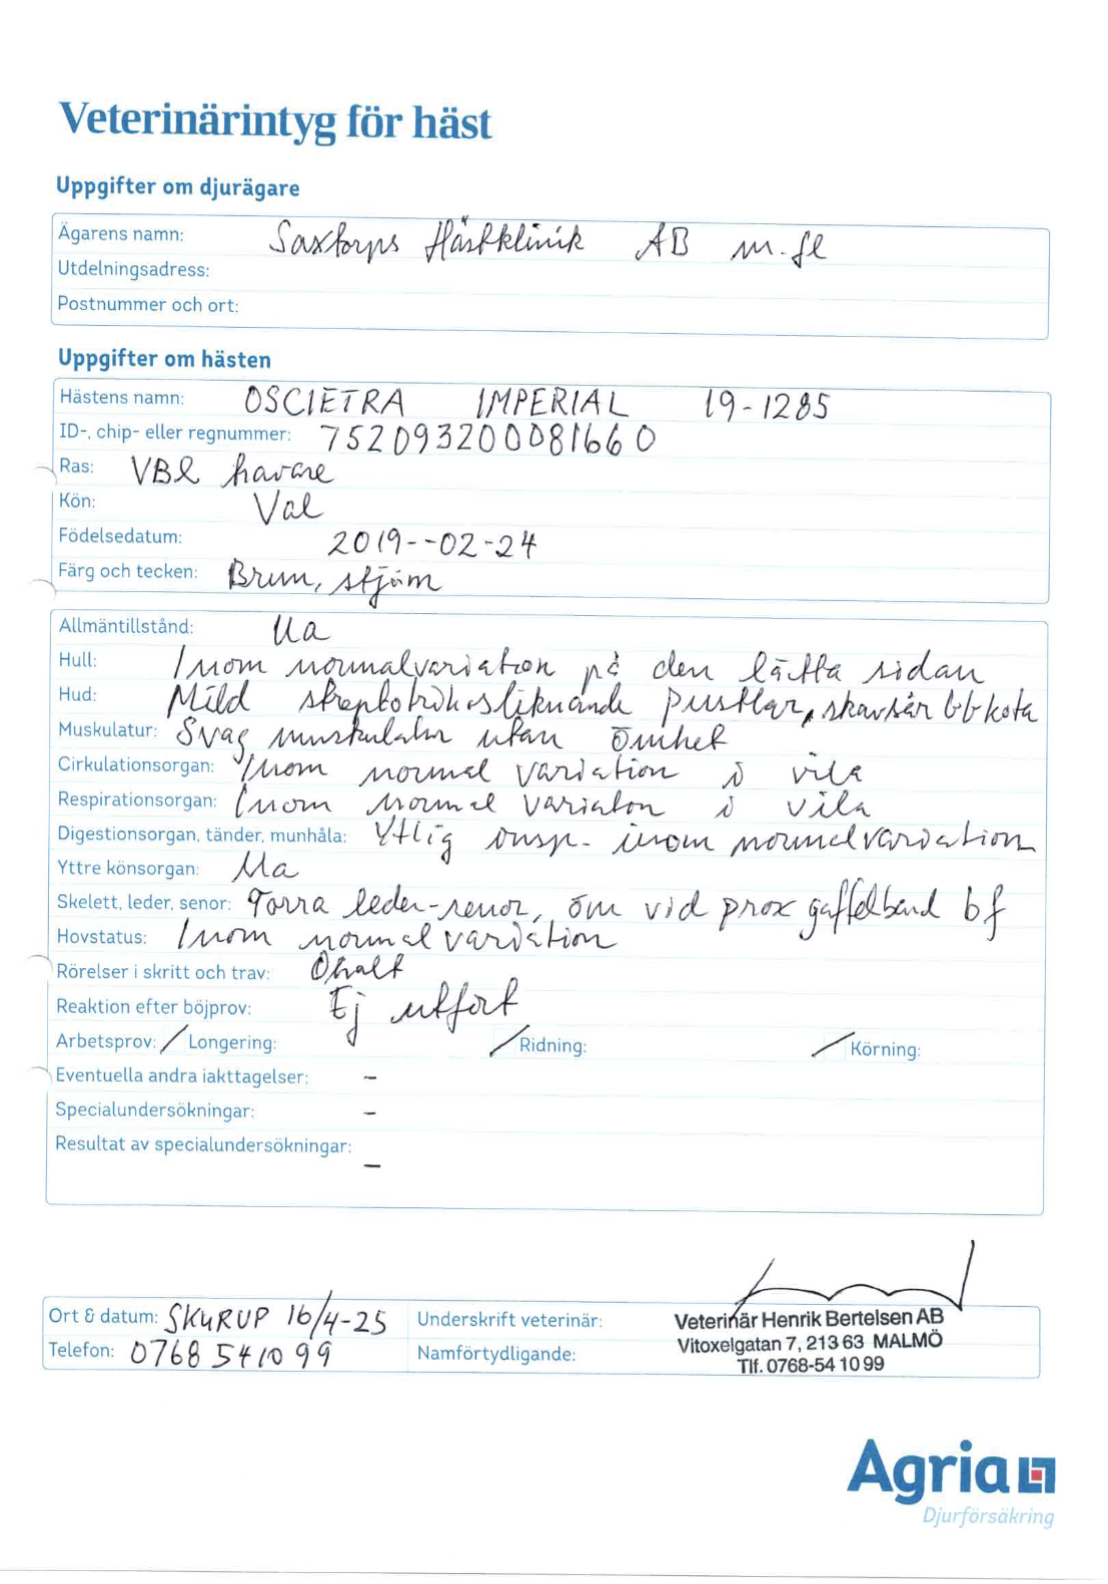 Veterinärintyg för häst
Uppgifter om djurägare
Ägarens namn: Saxtorps Hästklinik AB m.fl
Utdelningsadress:
Postnummer och ort:
Uppgifter om hästen
Hästens namn: OSCIETRA IMPERIAL 19-1285
ID-, chip- eller regnummer: 752093200081660
Ras: VBl havare
Kön: Val
Födelsedatum: 2019--02-24
Färg och tecken: Brun, stjärn
Allmäntillstånd: Ua
Hull: Inom normalvariation på den lätta sidan
Hud: Mild streptotrikosliknande pustlar, skavsår bb kota
Muskulatur: Svag muskulatur utan ömhet
Cirkulationsorgan: Inom normal variation i vila
Respirationsorgan: Inom normal variaton i vila
Digestionsorgan, tänder, munhåla: Ytlig insp. inom normalvariation
Yttre könsorgan: Ua
Skelett, leder, senor: Torra leder-senor, öm vid prox gaffelband bf
Hovstatus: Inom normal variation
Rörelser i skritt och trav: Ohalt
Reaktion efter böjprov: Ej utfört
Arbetsprov: / Longering: / Ridning: / Körning:
Eventuella andra iakttagelser: -
Specialundersökningar: -
Resultat av specialundersökningar: -
Ort & datum: SKURUP 16/4-25 Underskrift veterinär: Veterinär Henrik Bertelsen AB
Vitoxelgatan 7, 213 63 MALMÖ
Telefon: 0768 541099 Namförtydligande: Tlf. 0768-54 10 99
Agria
Djurförsäkring